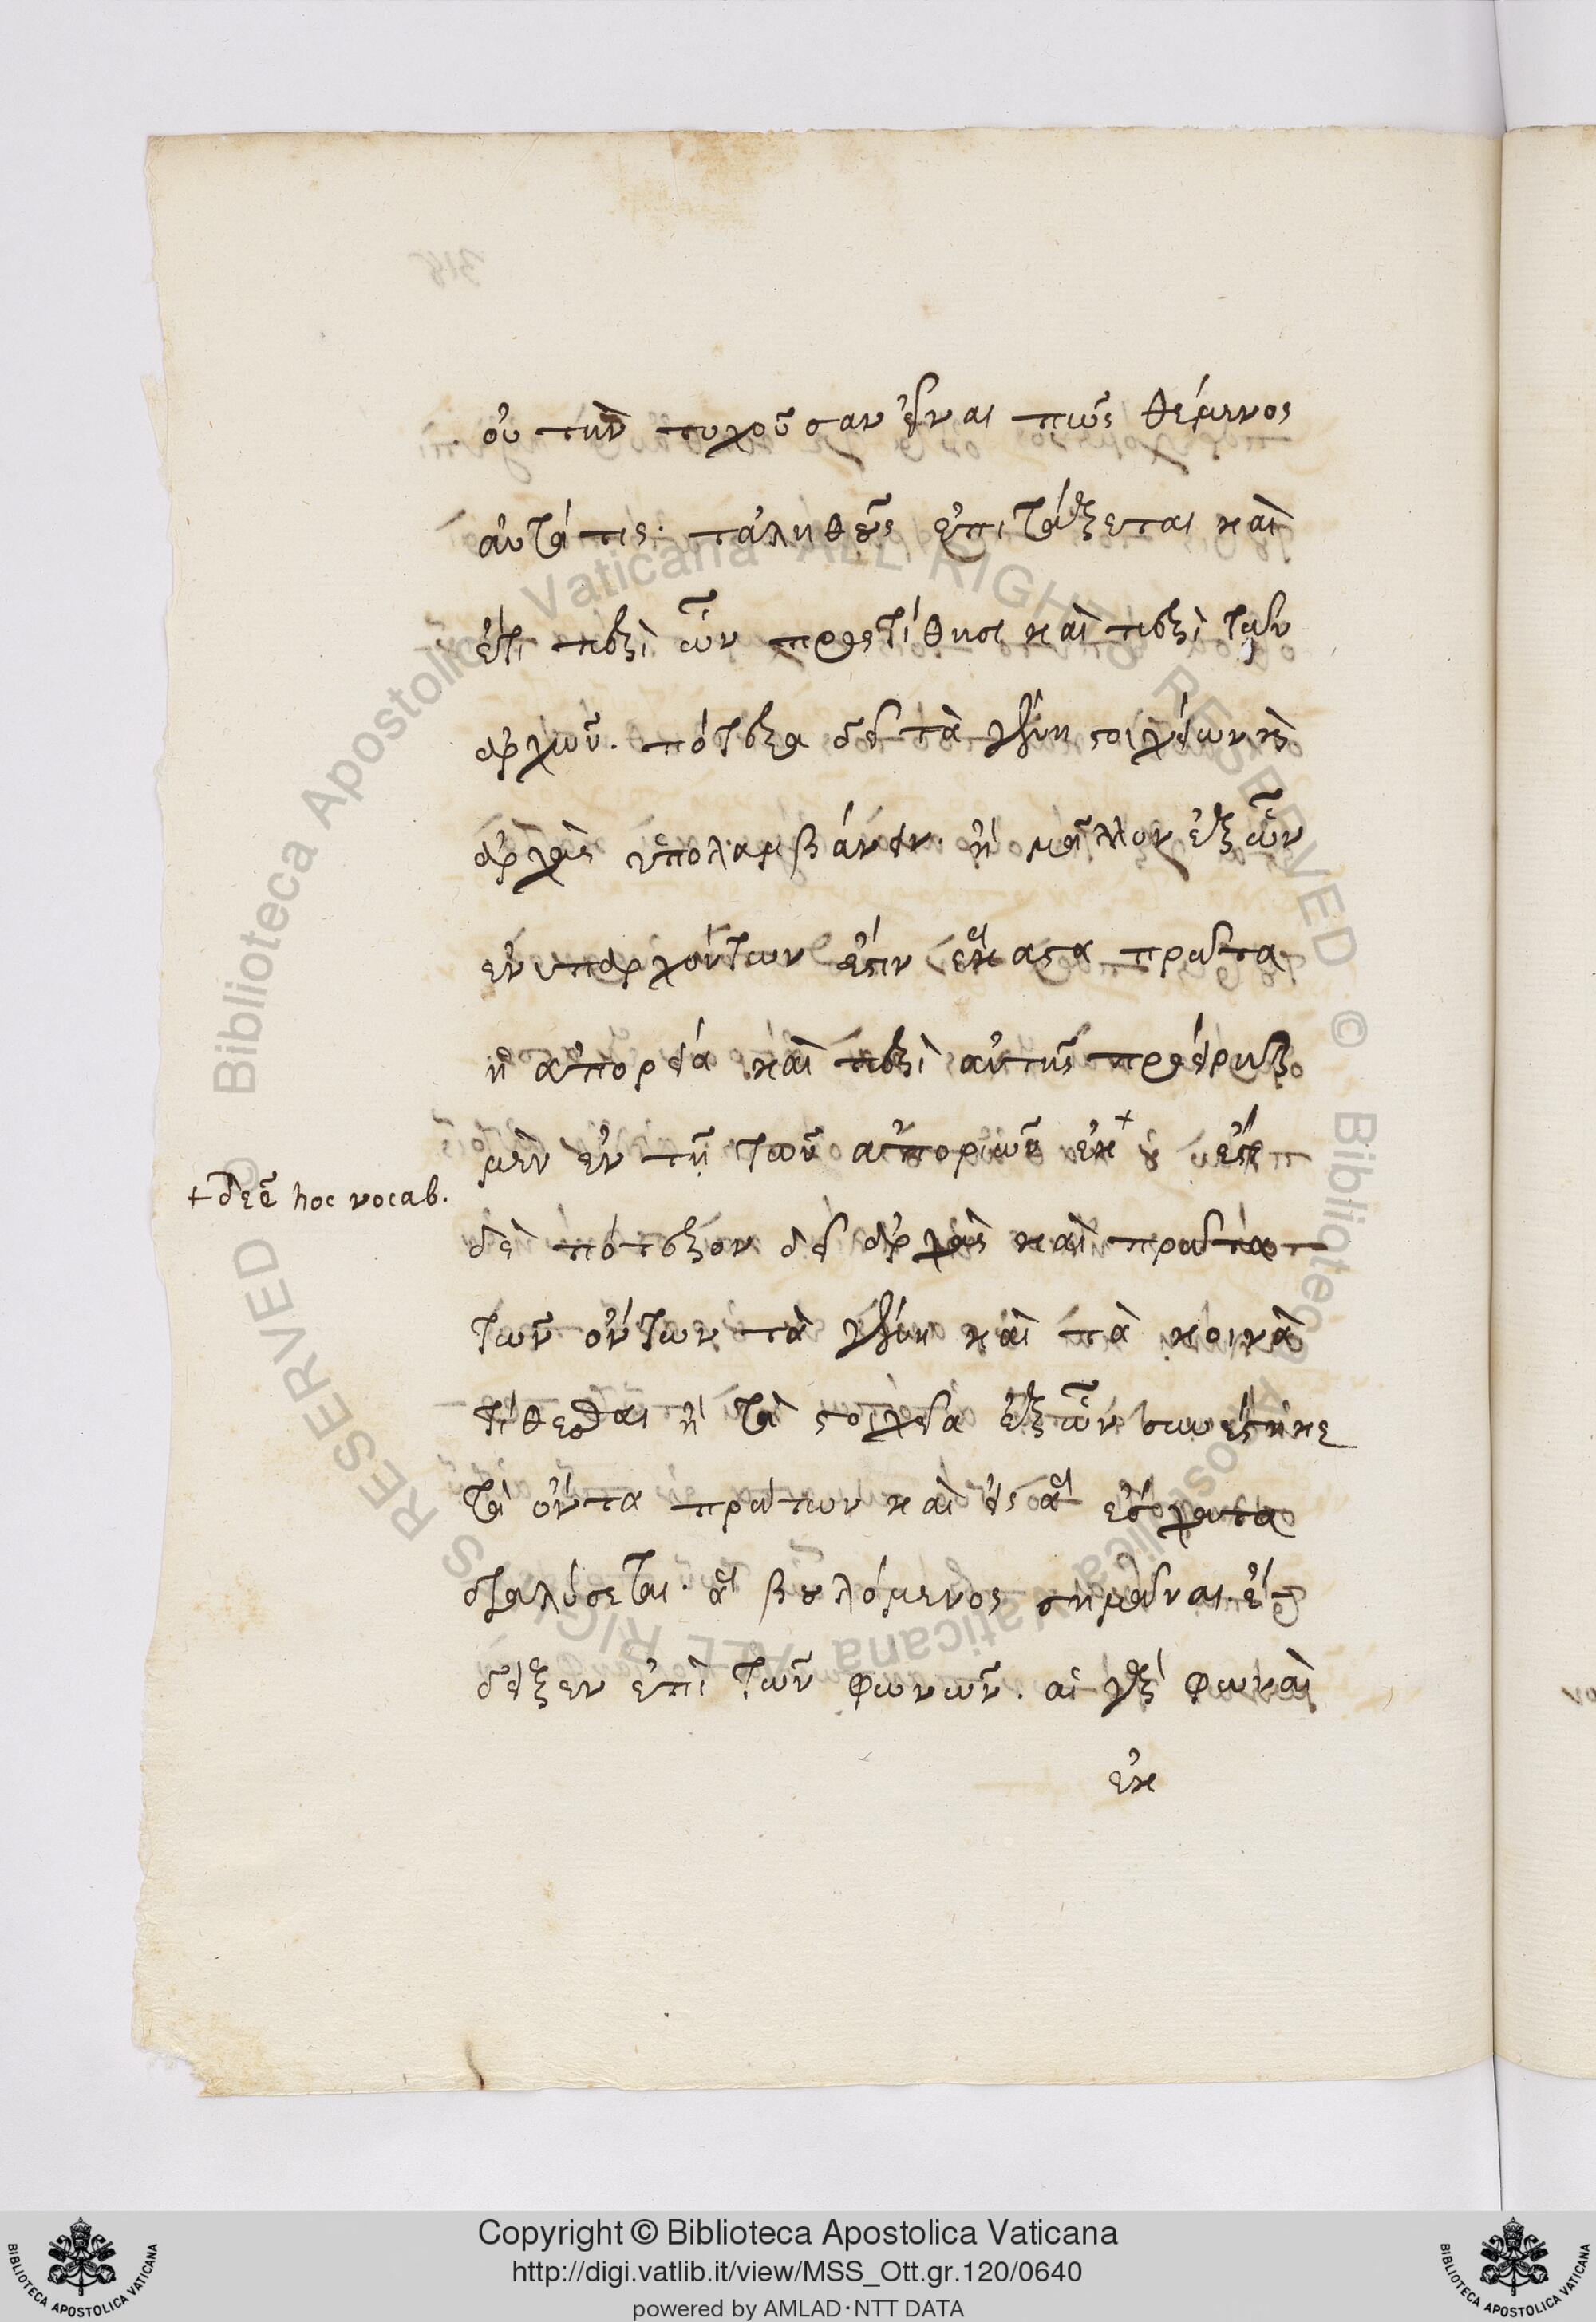 οὐ τὴν τυχοῦσαν εἶναι πῶς θέμενος
αὐτά τις· τἀληθοῦς ἐπιτάξεται καὶ
ἔτι περὶ ὧν προστίθησι καὶ περὶ τῶν
ἀρχῶν. πότερα δεῖ τὰ γένη στοιχεῖων κὶ
ἀρχὰς ὑπολαμβάνειν. ἢ μᾶλλον ἐξ ὧν
ἐνυπαρχόντων ἐστὶν ἕκαστα πρῶτα
ἡ ἀπορεία καὶ περὶ αὐτῆς προείρηται
μὲν ἐν τῇ τῶν ἀποριῶν ἐκ + οὐ ἔστι
δὲ πότερον δεῖ ἀρχὰς καὶ πρῶτα
τῶν ὄντων τὰ γένη καὶ τὰ κοινὰ
+ deē hoc vocab.
τίθεσθαι ἢ τὰ στοιχεῖα ἐξ ὧν συνέστηκε
τὰ ὄντα πρώτων καὶ εἰς ἃ ἔσχατα
διαλύσεται· ἃ βουλόμενος σημᾶναι. ἔ-
δειξεν ἐπὶ τῶν φωνῶν. αἱ γὰρ φωναὶ
ἐκ
Copyright © Biblioteca Apostolica Vaticana
http://digi.vatlib.it/view/MSS_Ott.gr.120/0640
powered by AMLAD·NTT DATA